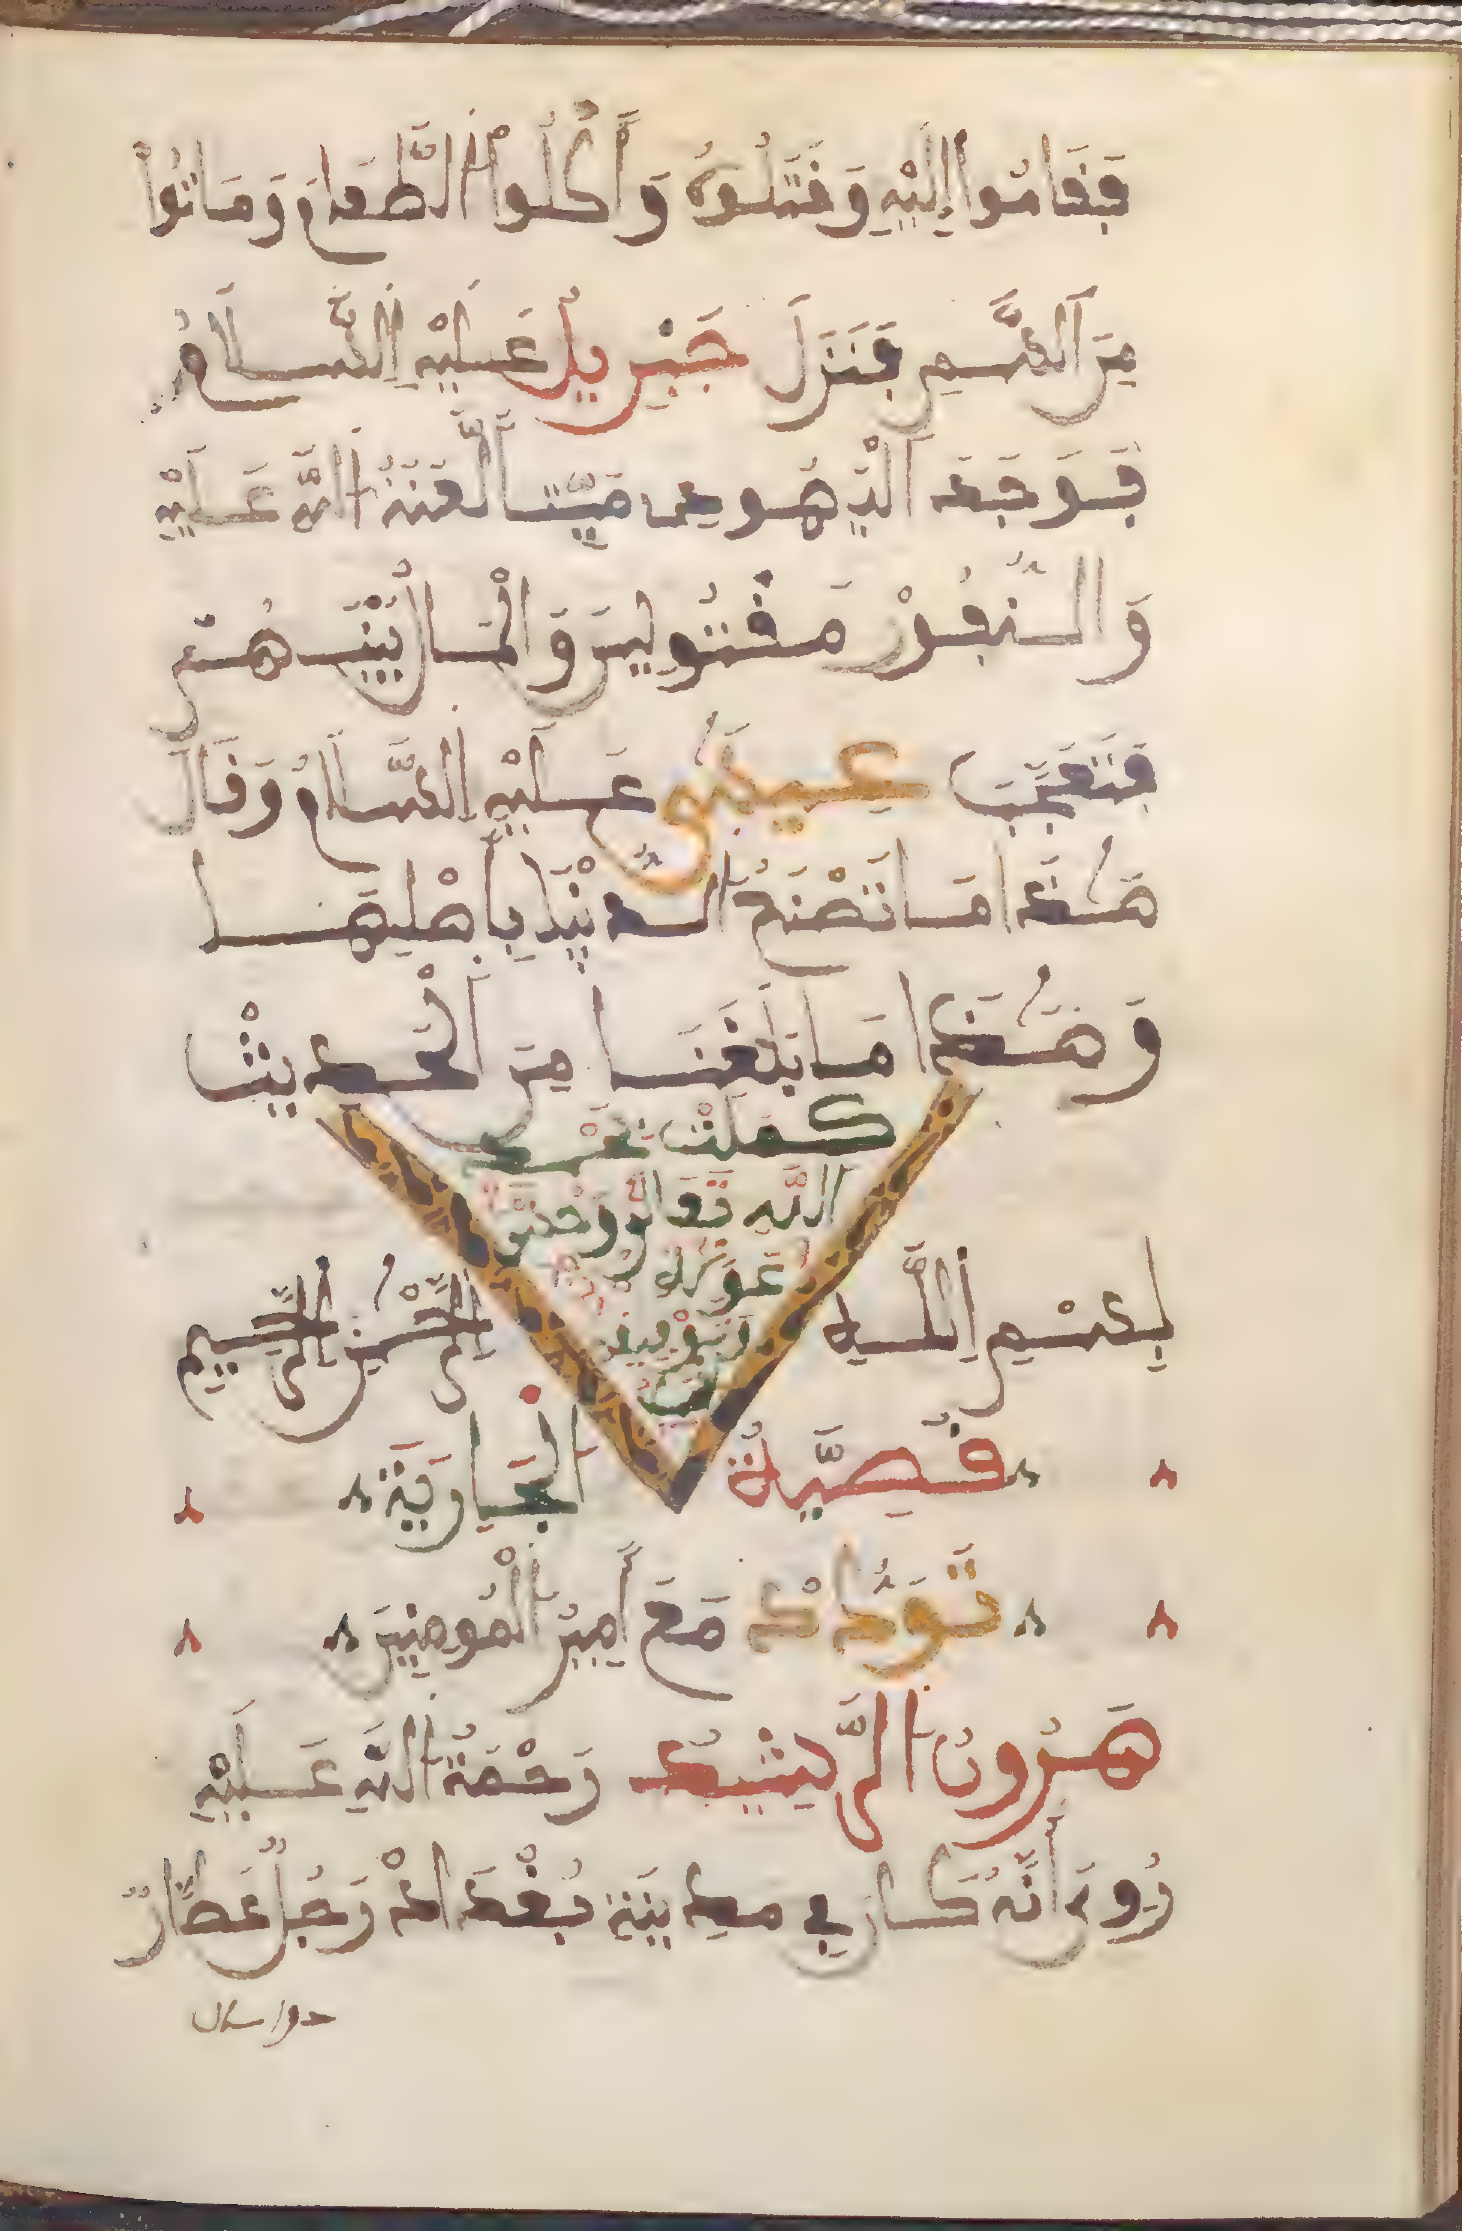 فَقَامُوا إِلَيْهِ وَقَتَلُوهُ وَأَكَلُوا الطَّعَامَ وَمَاتُوا
مِنَ السَّمِ فَنَزَلَ جَبْرِيلُ عَلَيْهِ السَّلَامُ
فَوَجَدَ الْيَهُودِي مَيِّتًا لَعْنَةُ اللَّهِ عَلَيْهِ
وَالنَّفَرْ مَقْتُولِينَ وَالْمَالُ بَيْنَهُمْ
فَتَعَجَّبَ عِيسَى عَلَيْهِ السَّلَامُ وَقَالَ
هَذَا مَا تَصْنَعُ الدُّنْيَا بِأَهْلِهَا
وَهَذَا مَا بَلَغَنَا مِنَ الْحَدِيثْ
كملت بحمد
الله تعالى وحسن
عونه
وتوفيقه
بِسْمِ اللَّهِ الرَّحْمَنِ الرَّحِيمِ
قِصَّةُ الْجَارِيَةِ
تَوَدُّدْ مَعَ أَمِيرِ الْمُومِنِينَ
هَرُونَ الرَّشِيدْ رَحْمَةُ اللَّهِ عَلَيْهِ
رُوِيَ أَنَّهُ كَانَ فِي مَدِينَةِ بَغْدَادْ رَجُلٌ عَطَّارٌ